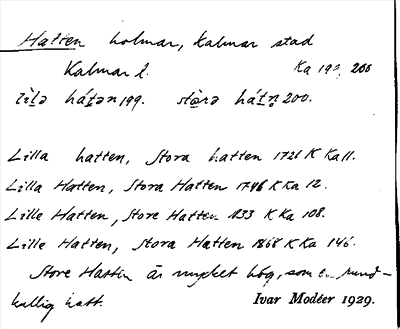 Hatten holmar, Kalmar stad
Kalmar l. Ka 199, 200
lìl̲ə hát̲ən 199. stòrə hát̲n̥ 200.
Lilla hatten, Stora hatten 1721 K Ka 11.
Lilla Hatten, Stora Hatten 1746 K Ka 12.
Lille Hatten, Store Hatten 1833 K Ka 108.
Lille Hatten, Stora Hatten 1868 K Ka 146.
Store Hatten är mycket hög, som en rund-
kullig hatt. Ivar Modéer 1929.